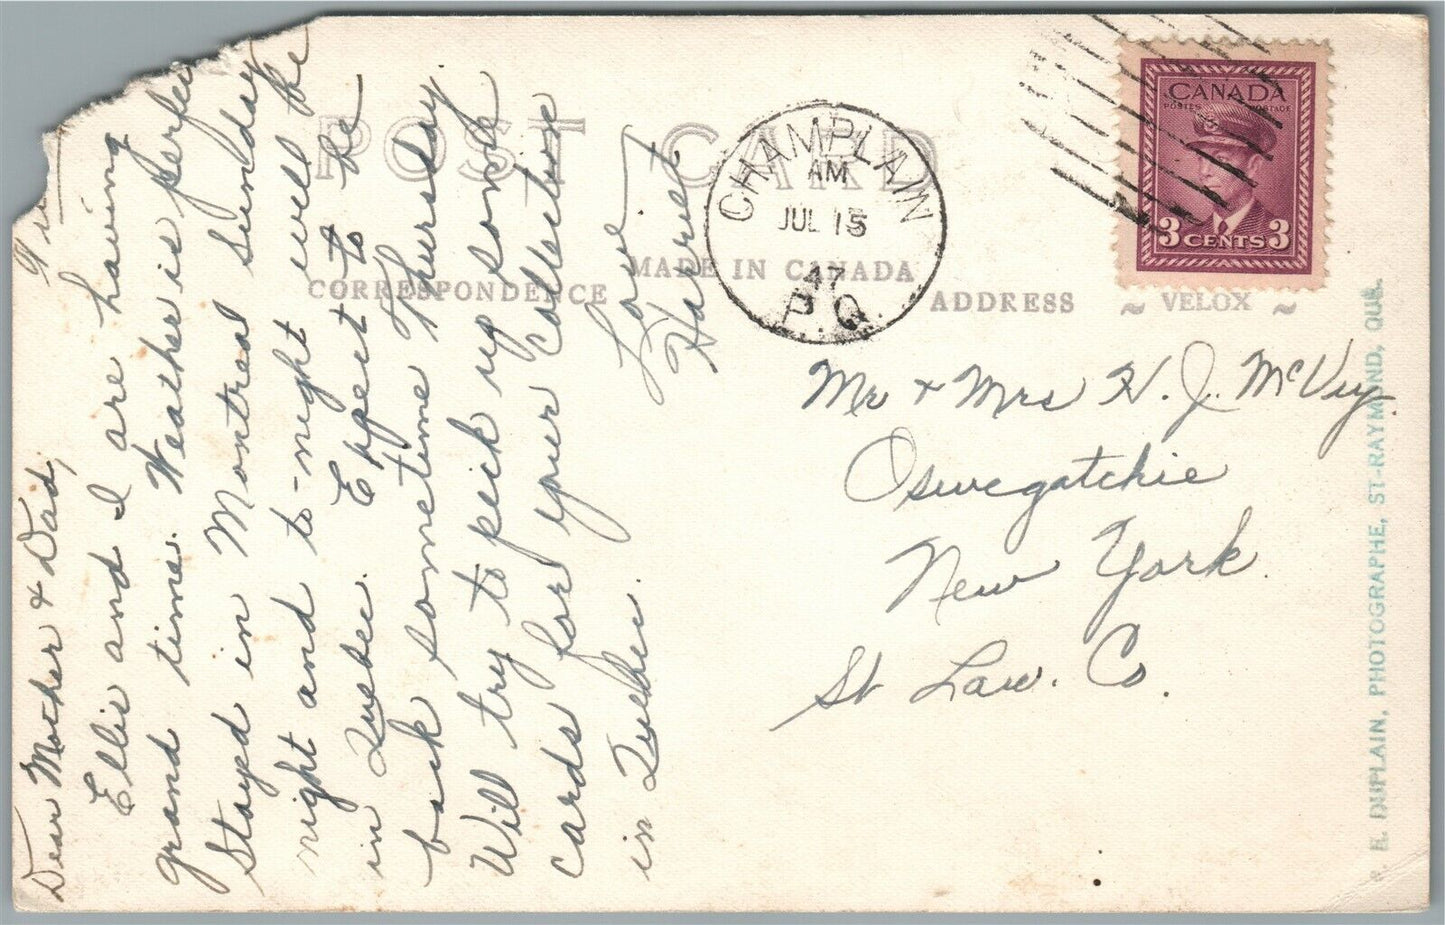 Dear Mother & Dad,
Ellie and I are having
grand time. Weather is perfec
Stayed in Montreal Sunday
night and to-night will be
in Quebec. Expect to be
back sometime Thursday.
Will try to pick up some
cards for your collection
in Quebec.
Love
Harriet
POST CARD
CORRESPONDENCE
MADE IN CANADA
ADDRESS
VELOX
CHAMPLAIN
AM
JUL 15
47
P.Q.
CANADA
POSTES POSTAGE
3 CENTS 3
Mr & Mrs H. J. McVey
Oswegatchie
New York
St Law. Co.
E. DUPLAIN, PHOTOGRAPHE, ST-RAYMOND, QUE.